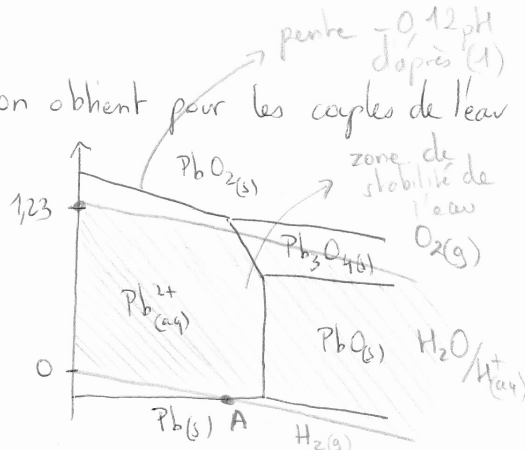 pente - 0,12 pH
d'après (1)
on obtient pour les couples de l'eau
PbO2(s)
zone de
stabilité de
l'eau
1,23
O2(g)
Pb3O4(s)
Pb2+
(aq)
PbO(s)
H2O/H+(aq)
0
Pb(s)
A
H2(g)